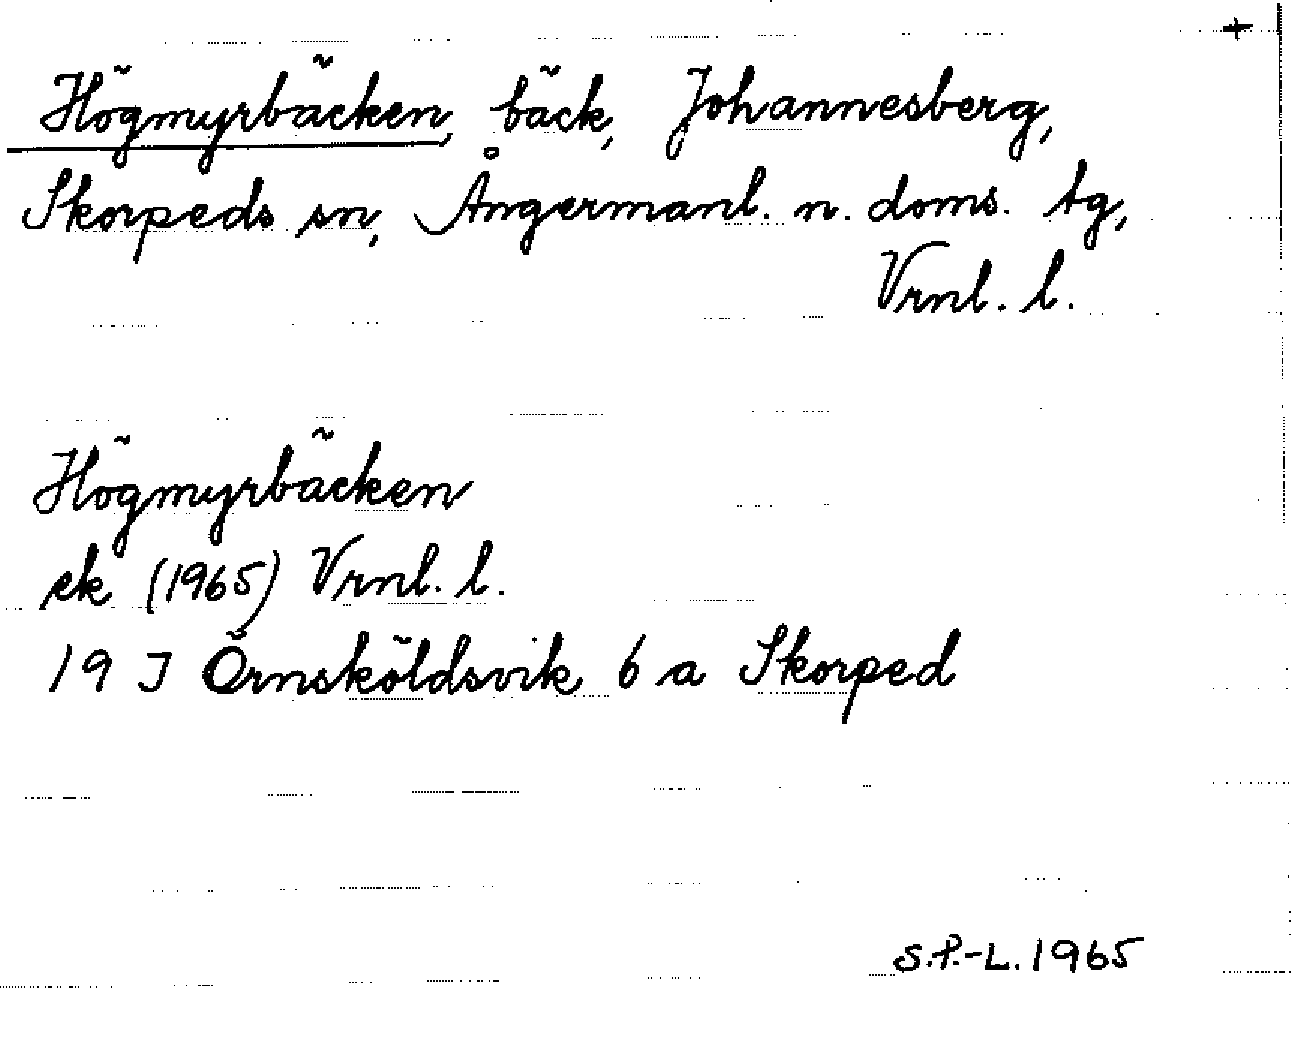 +
Högmyrbäcken, bäck, Johannesberg,
Skorpeds sn, Ångermanl. n. doms. tg,
Vrnl. l.
Högmyrbäcken
ek (1965) Vrnl. l.
19 J Örnsköldsvik 6 a Skorped
S.P.-L. 1965